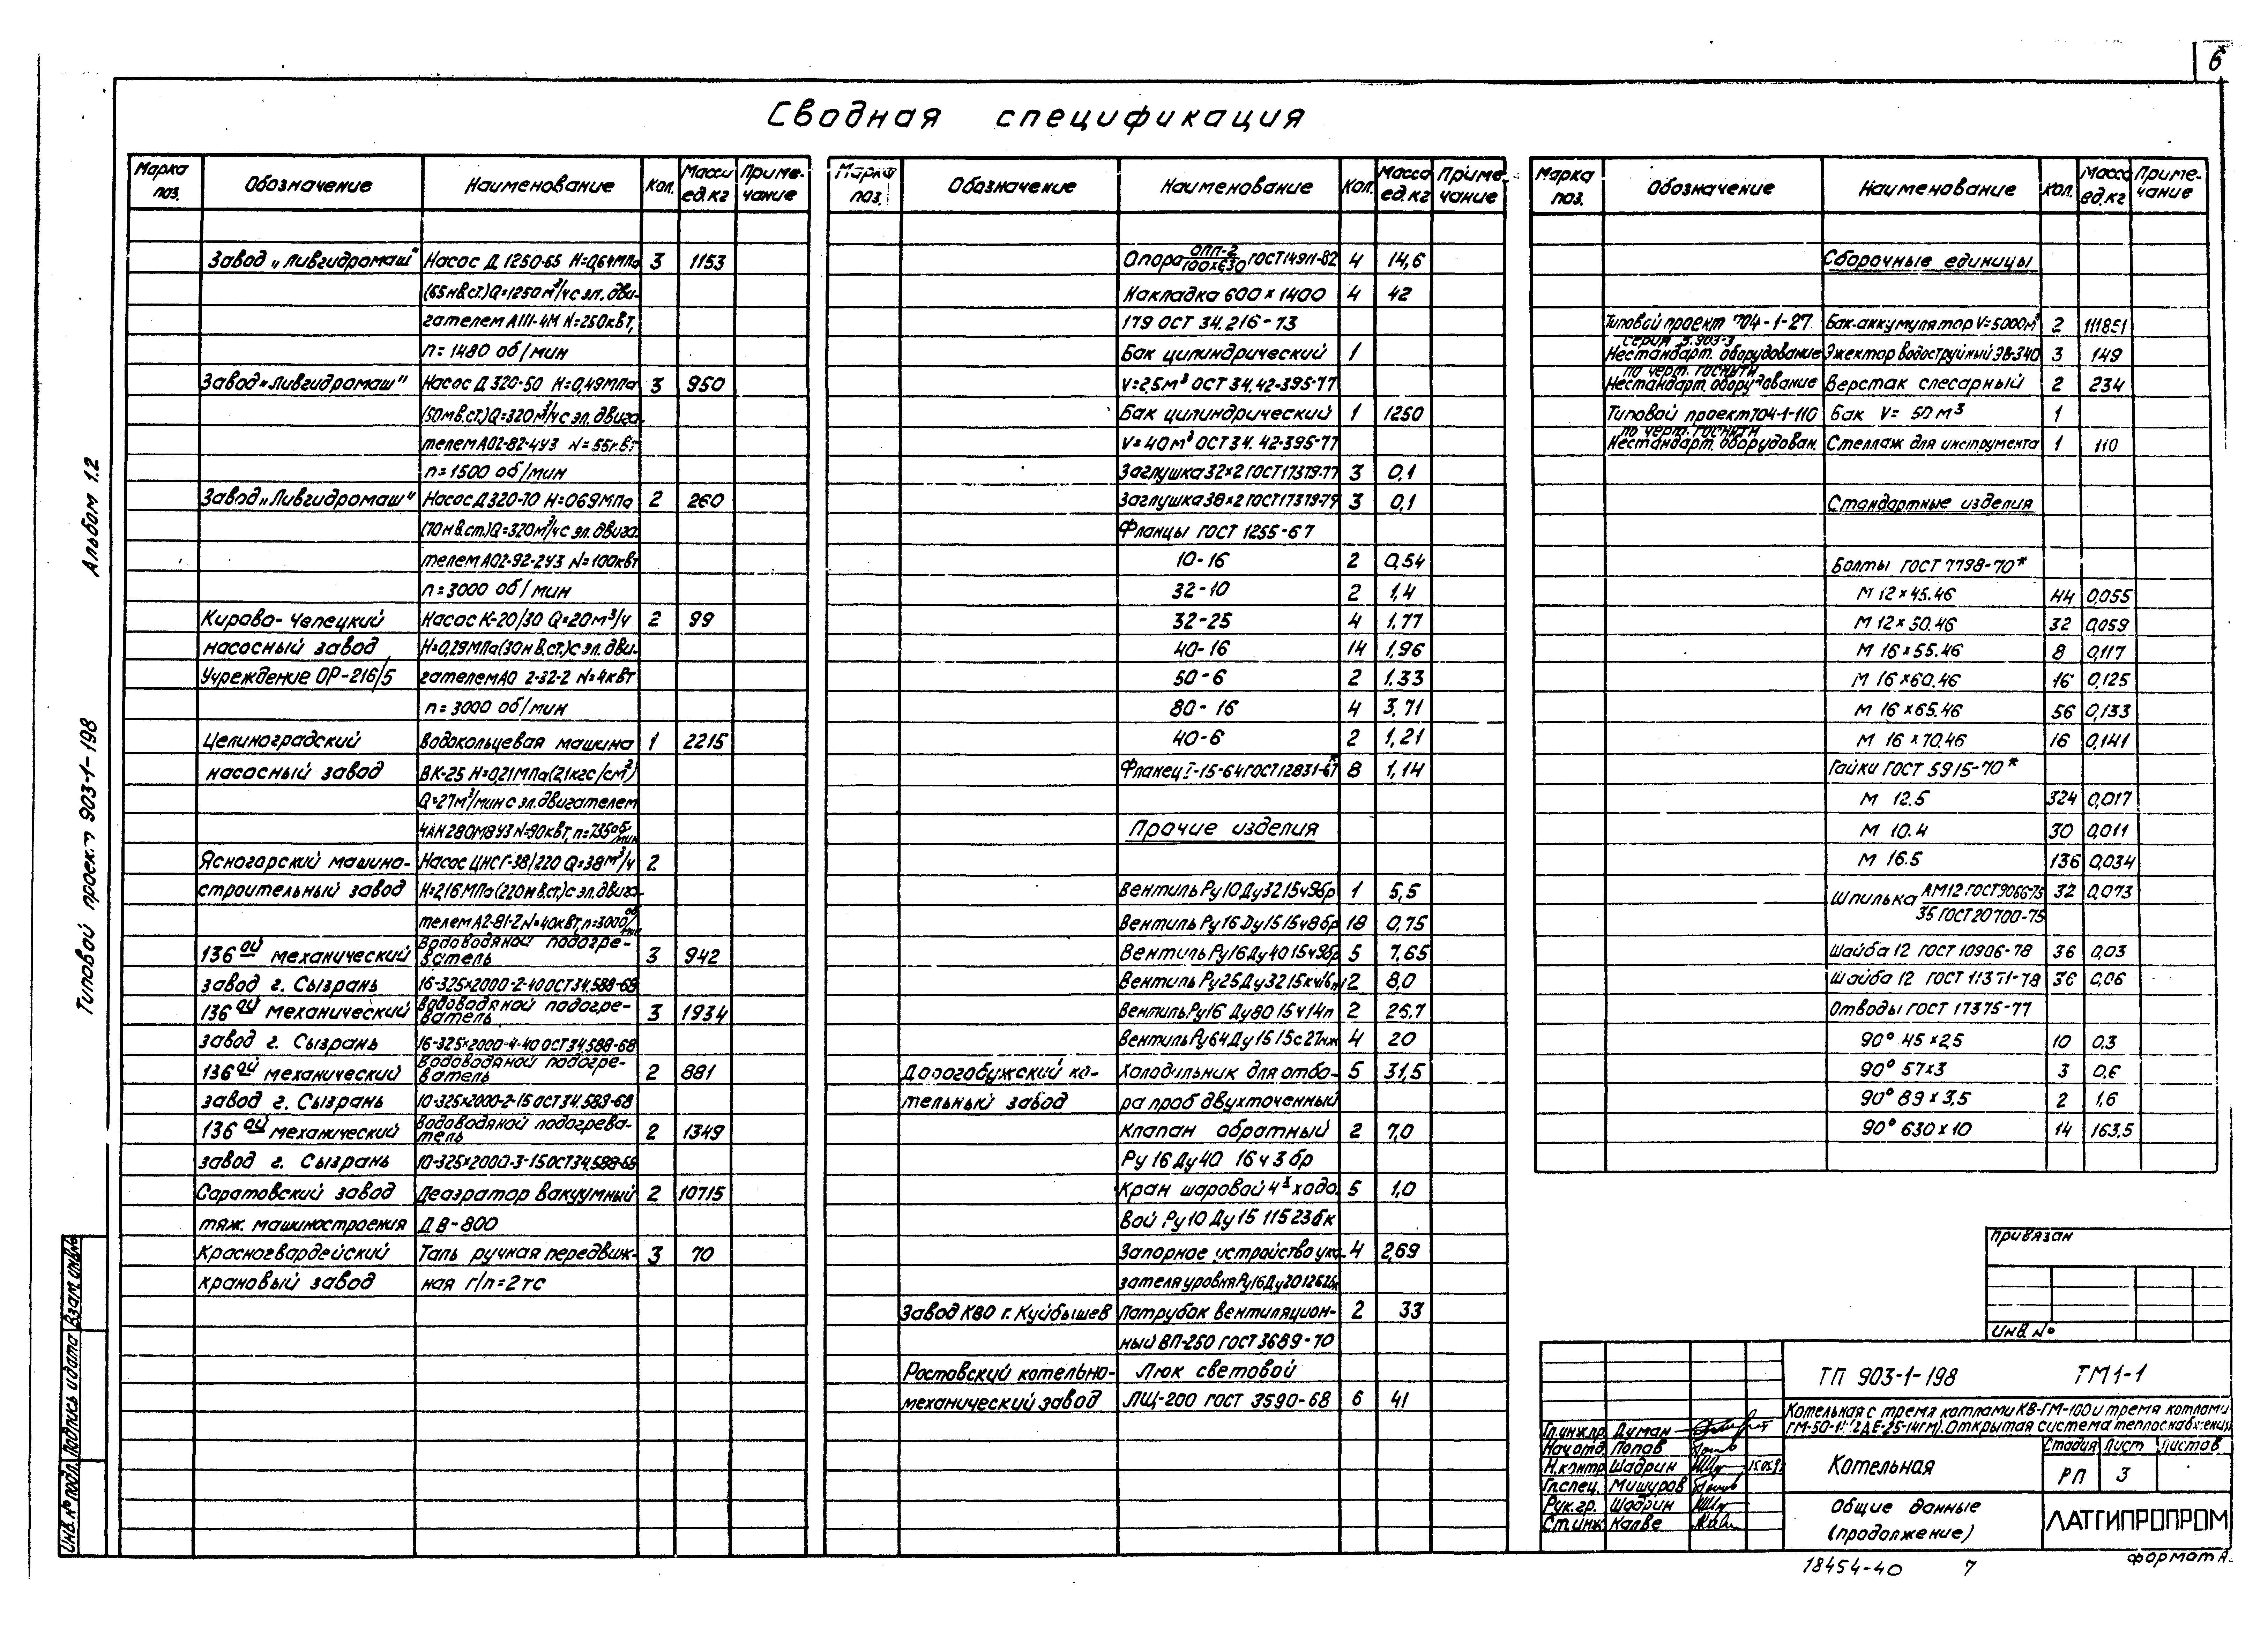 6
Сводная спецификация
Альбом 1.2
Типовой проект 903-1-198
Марка поз. Обозначение Наименование Кол. Масса ед.кг Примечание
Завод „Ливгидромаш" Насос Д 1250-65 Н=0,64МПа 3 1153
(65мв.ст.) Q=1250 м³/ч с эл. дви-
гателем А111-4М N=250кВт,
n=1480 об/мин
Завод „Ливгидромаш" Насос Д 320-50 Н=0,49МПа 3 950
(50мв.ст.) Q=320м³/ч с эл. двига-
телем А02-82-4У3 N=55кВт
n=1500 об/мин
Завод „Ливгидромаш" Насос Д320-70 Н=069МПа 2 260
(70мв.ст.) Q=320м³/ч с эл. двига-
телем А02-92-2У3 N=100кВт
n=3000 об/мин
Кирово-Чепецкий Насос К-20/30 Q=20м³/ч 2 99
насосный завод Н=0,29МПа (30мв.ст.) с эл. дви-
Учреждение ОР-216/5 гателем АО 2-32-2 N=4кВт
n=3000 об/мин
Целиноградский Водокольцевая машина 1 2215
насосный завод ВК-25 Н=0,21МПа (2,1кгс/см²)
Q=27м³/мин с эл. двигателем
4АН280М8У3 N=90кВт, n=735 об/мин
Ясногорский машино- Насос ЦНСГ-38/220 Q=38м³/ч 2
строительный завод Н=2,16МПа (220мв.ст.) с эл. двига-
телем А2-81-2 N=40кВт, n=3000 об/мин
136ой механический Водоводяной подогре-ватель 3 942
завод г. Сызрань 16-325×2000-2-40 ОСТ34.588-68
136ой механический Водоводяной подогре-ватель 3 1934
завод г. Сызрань 16-325×2000-4-40 ОСТ34.588-68
136ой механический Водоводяной подогре-ватель 2 881
завод г. Сызрань 10-325×2000-2-15 ОСТ34.588-68
136ой механический Водоводяной подогрева-тель 2 1349
завод г. Сызрань 10-325×2000-3-15 ОСТ34.588-68
Саратовский завод Деаэратор вакуумный 2 10715
тяж. машиностроения ДВ-800
Красногвардейский Таль ручная передвиж- 3 70
крановый завод ная г/п=2тс
Марка поз. Обозначение Наименование Кол. Масса ед.кг Примечание
Опора ГОСТ14911-82 4 14,6
Накладка 600×1400 4 42
179 ОСТ 34.216-73
Бак цилиндрический 1
V=2,5м³ ОСТ 34.42-395-77
Бак цилиндрический 1 1250
V=40м³ ОСТ 34.42-395-77
Заглушка 32×2 ГОСТ17379-77 3 0,1
Заглушка 38×2 ГОСТ17379-79 3 0,1
Фланцы ГОСТ 1255-67
10-16 2 0,54
32-10 2 1,4
32-25 4 1,77
40-16 14 1,96
50-6 2 1.33
80-16 4 3,71
40-6 2 1,21
Фланец I-15-64 ГОСТ12831-67* 8 1,14
Прочие изделия
Вентиль Ру10 Ду32 15ч9бр 1 5,5
Вентиль Ру16 Ду15 15ч8бр 18 0,75
Вентиль Ру16 Ду40 15ч9бр 5 7,65
Вентиль Ру25 Ду32 15кч16п1 2 8,0
Вентиль Ру16 Ду80 15ч14п 2 26,7
Вентиль Ру64 Ду15 15с27нж 4 20
Дорогобужский ко- Холодильник для отбо- 5 31,5
тельный завод ра проб двухточенный
Клапан обратный 2 7,0
Ру16 Ду40 16ч3бр
Кран шаровой 4х ходо- 5 1,0
вой Ру10 Ду15 11Б23бк
Запорное устройство ука- 4 2,69
зателя уровня Ру16 Ду20 12Б2бк
Завод КВО г. Куйбышев Патрубок вентиляцион- 2 33
ный ВП-250 ГОСТ3689-70
Ростовский котельно- Люк световой
механический завод ЛЩ-200 ГОСТ 3590-68 6 41
Марка поз. Обозначение Наименование Кол. Масса ед.кг Примечание
Сборочные единицы
Типовой проект 704-1-27 Бак-аккумулятор V=5000м³ 2 111851
серия 5.903-3
Нестандарт. оборудование Эжектор водоструйный ЭВ-340 3 149
по черт. ГОСНИТИ
Нестандарт. оборудование Верстак слесарный 2 234
Типовой проект 704-1-110 Бак V= 50м³ 1
по черт. ГОСНИТИ
Нестандарт. оборудован. Стеллаж для инструмента 1 110
Стандартные изделия
Болты ГОСТ 7798-70*
М 12×45.46 44 0,055
М 12×50.46 32 0,059
М 16×55.46 8 0,117
М 16×60.46 16 0,125
М 16×65.46 56 0,133
М 16×70.46 16 0,141
Гайки ГОСТ 5915-70*
М 12.5 324 0,017
М 10.4 30 0,011
М 16.5 136 0,034
Шпилька АМ12 ГОСТ9066-75 32 0,073
35 ГОСТ20700-75
Шайба 12 ГОСТ 10906-78 36 0,03
Шайба 12 ГОСТ 11371-78 36 0,06
Отводы ГОСТ 17375-77
90° 45×2,5 10 0,3
90° 57×3 3 0,6
90° 89×3,5 2 1,6
90° 630×10 14 163,5
Привязан
Инв.№
ТП 903-1-198 ТМ1-1
Котельная с тремя котлами КВ-ГМ-100 и тремя котлами
ГМ-50-14 (2ДЕ-25-14ГМ). Открытая система теплоснабжения
Гл.инж.пр. Думан
Нач.отд. Попов
Н.контр. Шадрин
Гл.спец. Мишуров
Рук.гр. Шадрин
Ст.инж. Калве
Котельная
Стадия Лист Листов
РП 3
Общие данные
(продолжение)
ЛАТГИПРОПРОМ
18454-40 7
формат А
Инв.№ подл. Подпись и дата Взам.инв.№